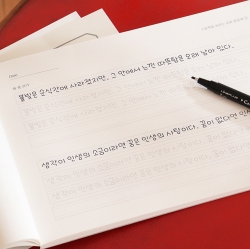 불빛은 순식간에 사라졌지만, 그 안에서 느낀 따뜻함은 오래 남아 있다.
생각이 인생의 소금이라면 꿈은 인생의 사탕이다. 꿈이 없다면 인생